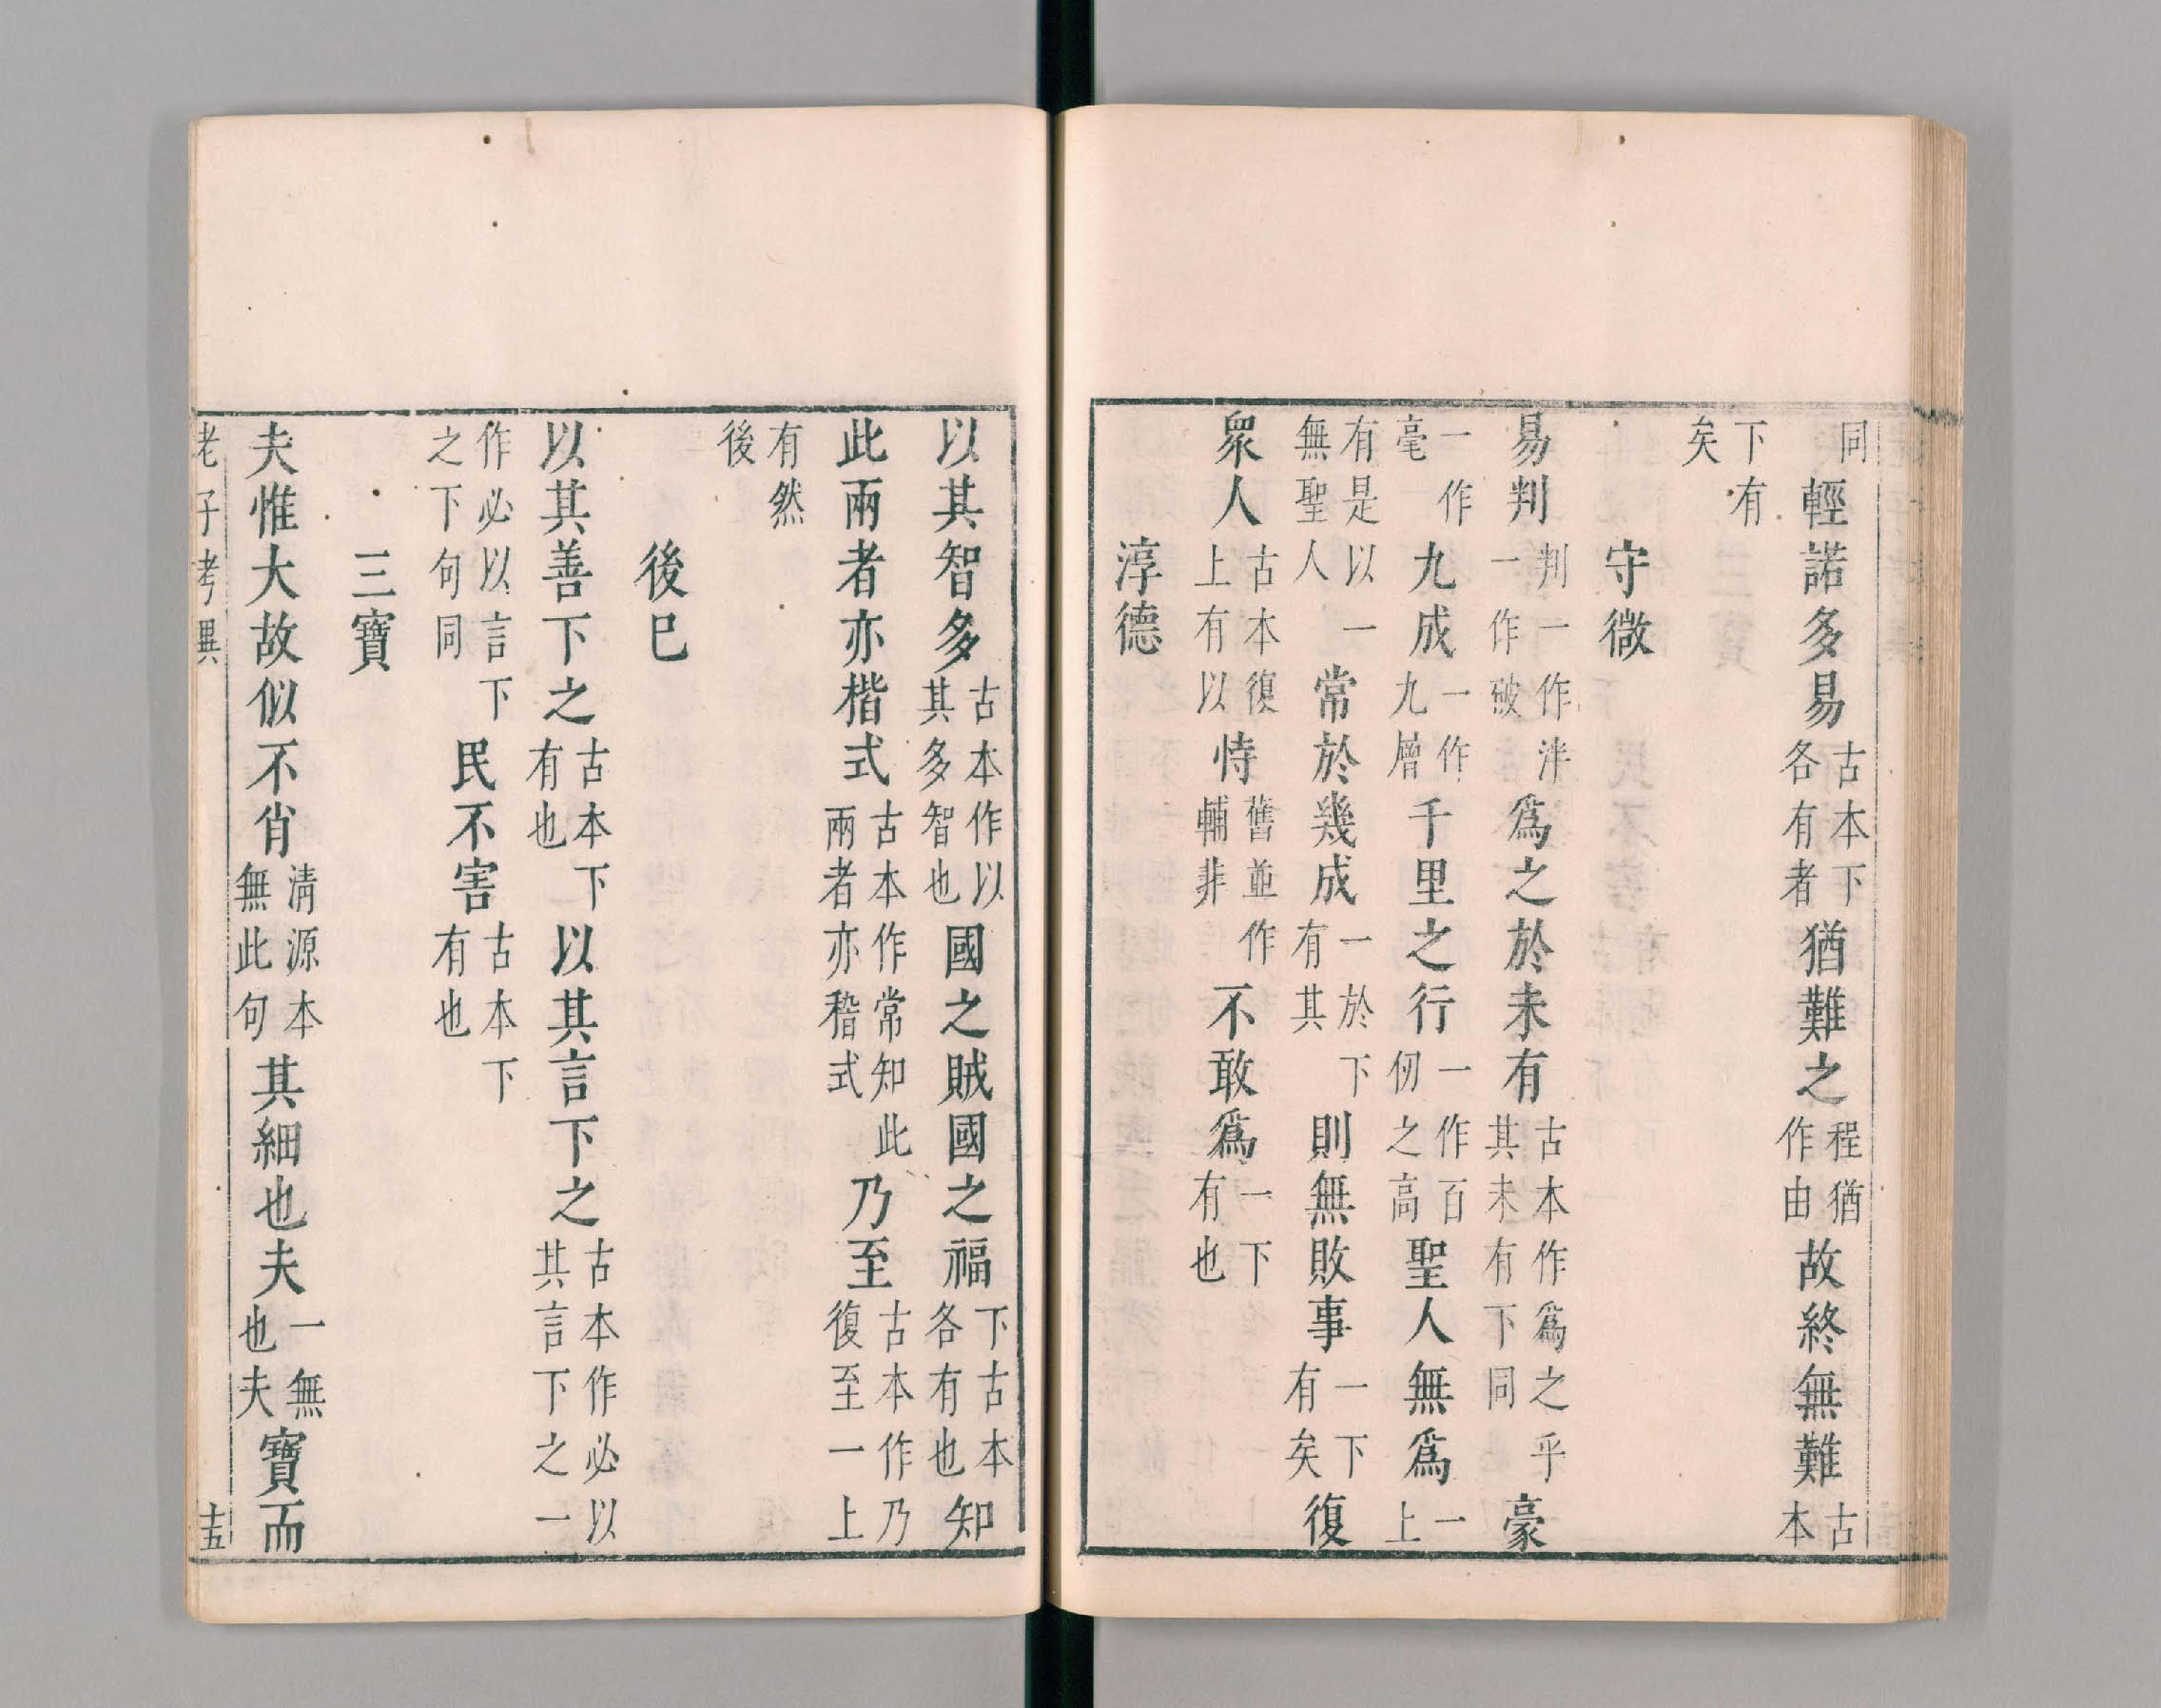 同輕諾多易古本下各有者猶難之程猶作由故終無難古本
下有矣
守微
易判判一作泮一作破爲之於未有古本作爲之乎其未有下同豪
一作毫九成一作九層千里之行一作百仞之高聖人無爲一上
有是以一無聖人常於幾成一於下有其則無敗事一下有矣復
衆人古本復上有以恃舊並作輔非不敢爲一下有也
淳德
以其智多古本作以其多智也國之賊國之福下古本各有也知
此兩者亦楷式古本作常知此兩者亦稽式乃至古本作乃復至一上
有然後
後巳
以其善下之古本下有也以其言下之古本作必以其言下之一
作必以言下之下句同民不害古本下有也
三寶
夫惟大故似不肖清源本無此句其細也夫一無也夫寶而
老子考異 十五